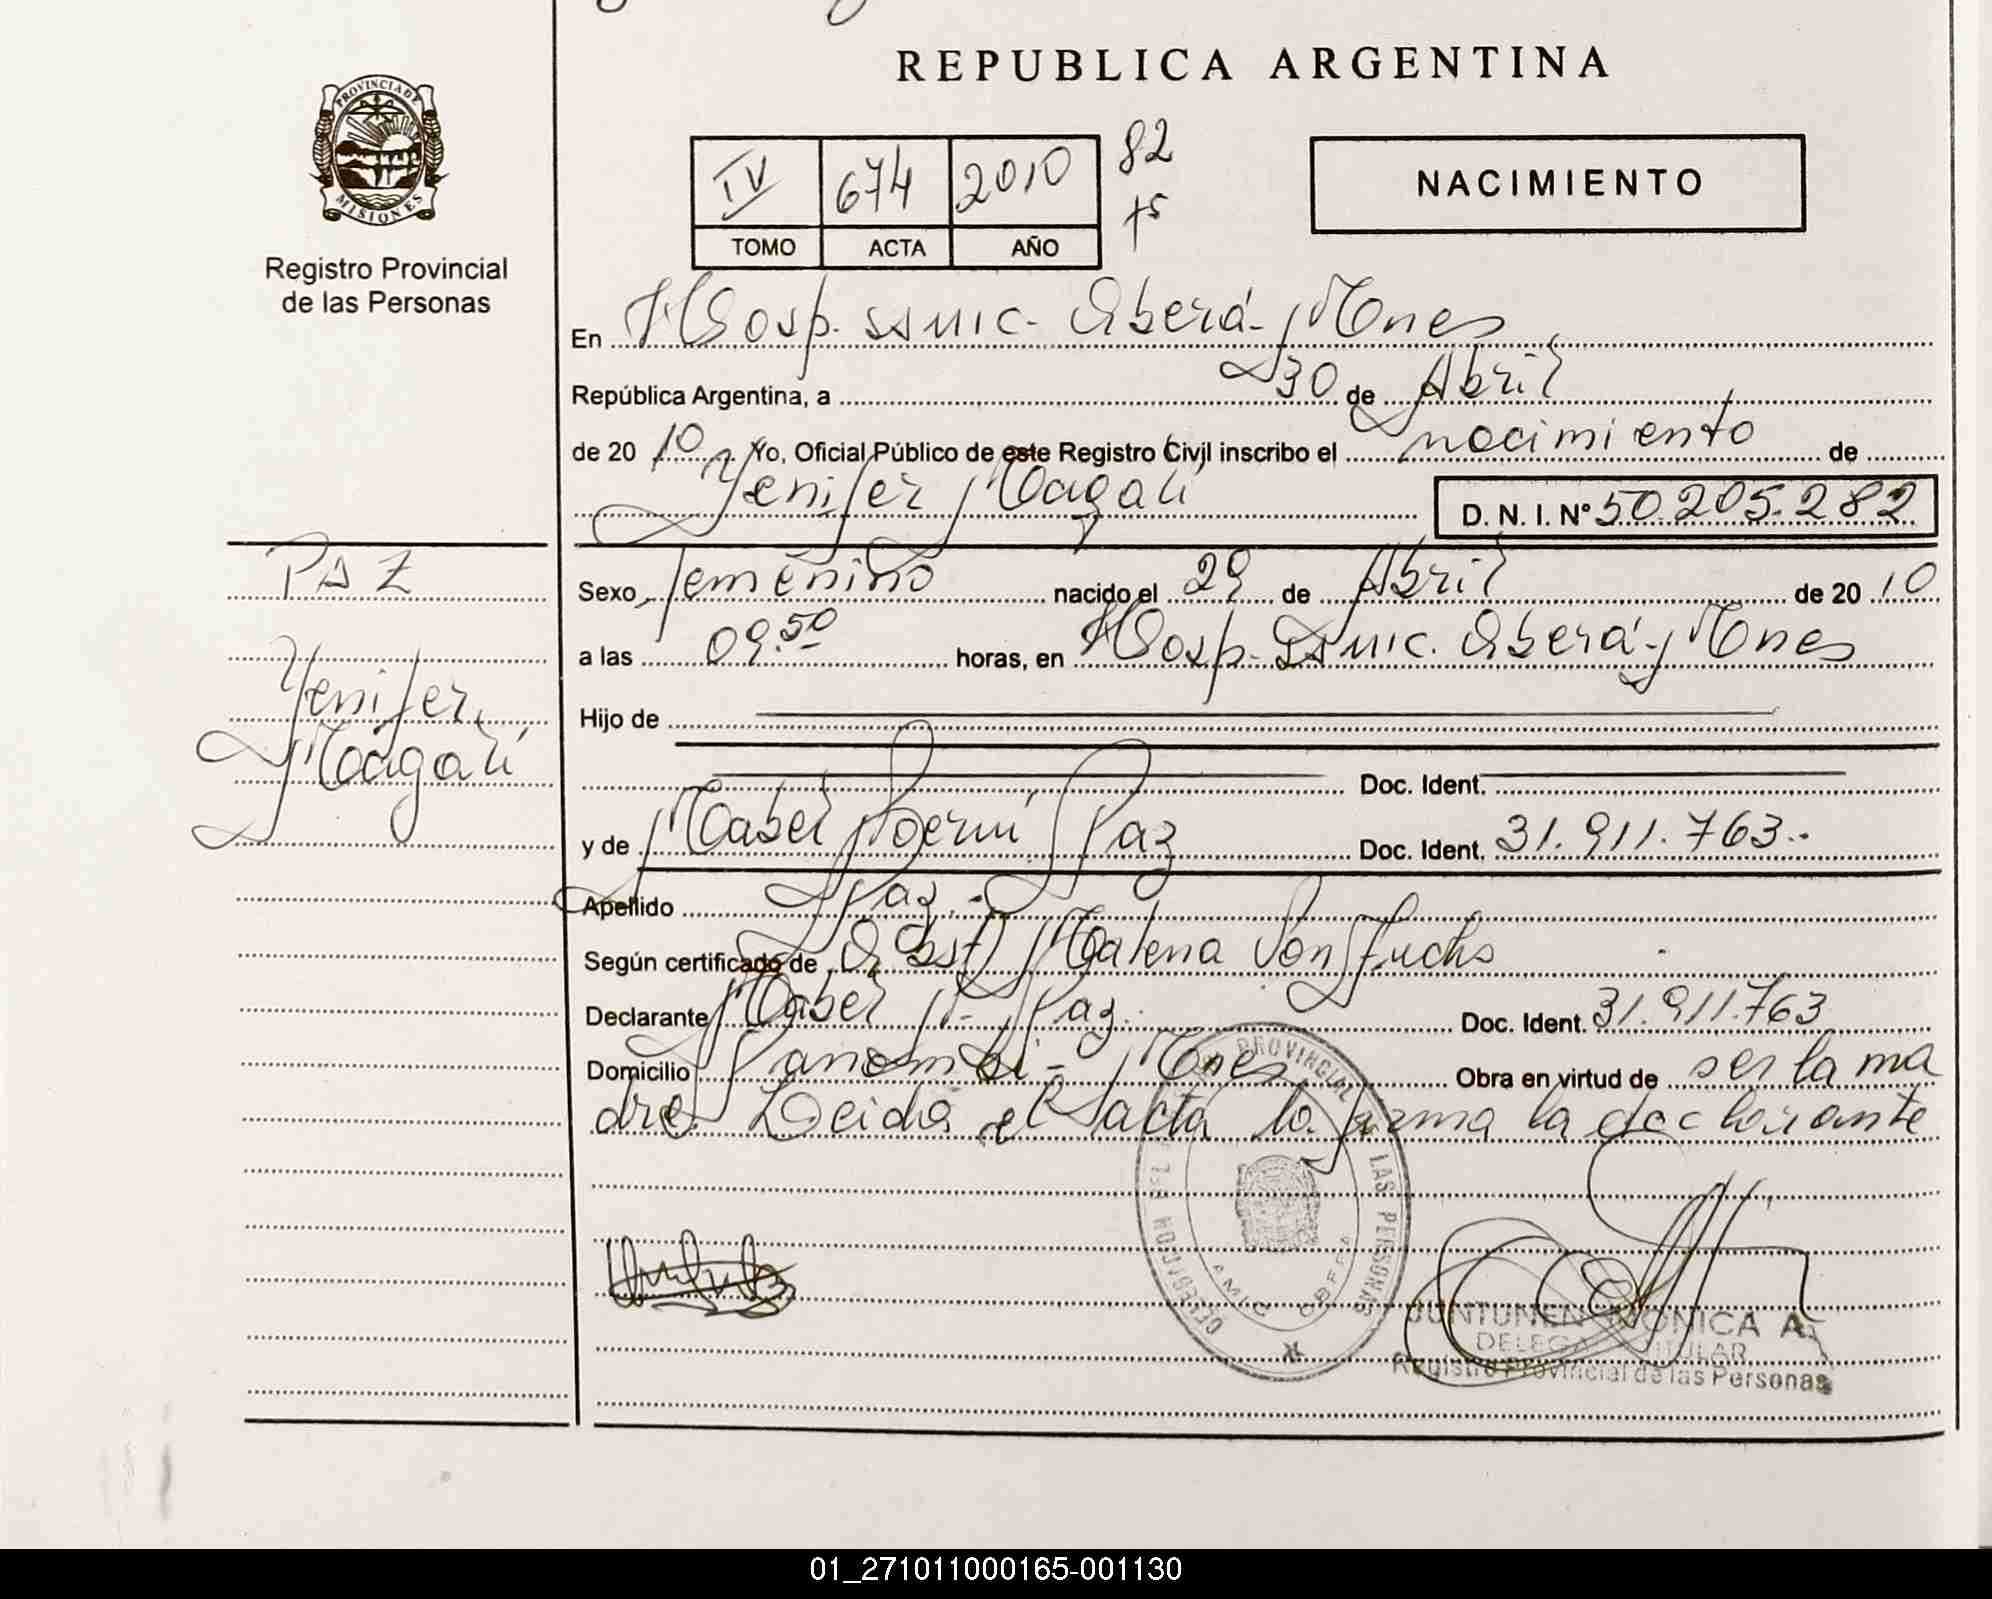 REPUBLICA ARGENTINA
PROVINCIA DE
MISIONES
Registro Provincial
de las Personas
IV 674 2010 82
75
TOMO ACTA AÑO
NACIMIENTO
En Hosp. SSMIC. Oberá - Mnes
República Argentina, a 30 de Abril
de 2010 Yo, Oficial Público de este Registro Civil inscribo el nacimiento de
Yenifer Magalí D. N. I. N° 50.205.282
PAZ
Yenifer
Magalí
Sexo femenino nacido el 29 de Abril de 2010
a las 09.50 horas, en Hosp. SSMIC. Oberá - Mnes
Hijo de
Doc. Ident.
y de Mabel Noemí Paz Doc. Ident. 31.911.763.-
Apellido Paz.-
Según certificado de Obst. Malena Von Fuchs
Declarante Mabel N. Paz. Doc. Ident. 31.911.763
Domicilio Panambí - Mnes Obra en virtud de ser la ma
dre. Leida el acta la firma la declarante
DELEGACION DEL REGISTRO PROVINCIAL DE LAS PERSONAS
OBERA
JUNTUNEN MONICA A.
DELEGADA TITULAR
Registro Provincial de las Personas
01_271011000165-001130